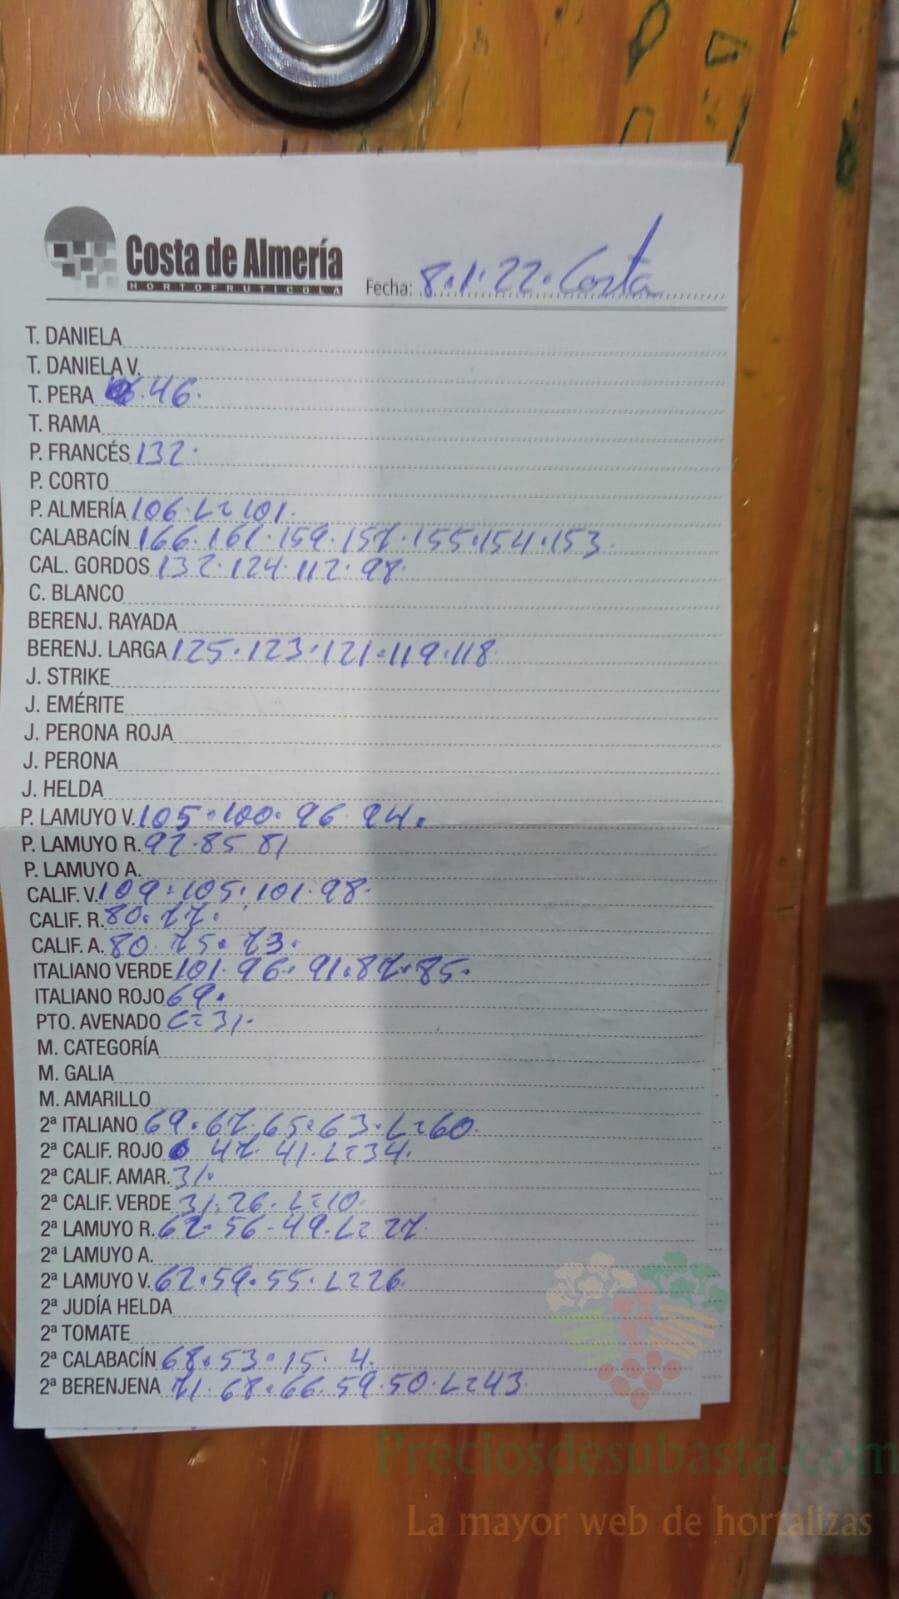 Costa de Almería
HORTOFRUTICOLA
Fecha: 8.1.22. Costa
T. DANIELA
T. DANIELA V.
T. PERA 46.
T. RAMA
P. FRANCÉS 132.
P. CORTO
P. ALMERÍA 106. L=101.
CALABACÍN 166.161.159.157.155.154.153
CAL. GORDOS 132.124.112.98.
C. BLANCO
BERENJ. RAYADA
BERENJ. LARGA 125.123.121.119.118
J. STRIKE
J. EMÉRITE
J. PERONA ROJA
J. PERONA
J. HELDA
P. LAMUYO V. 105.100.96.94.
P. LAMUYO R. 92.85 81
P. LAMUYO A.
CALIF. V. 109.105.101.98.
CALIF. R. 80.77.
CALIF. A. 80.75.73.
ITALIANO VERDE 101.96.91.87.85.
ITALIANO ROJO 69.
PTO. AVENADO C=31.
M. CATEGORÍA
M. GALIA
M. AMARILLO
2ª ITALIANO 69.67.65.63.L=60.
2ª CALIF. ROJO 47.41.L=34.
2ª CALIF. AMAR. 31.
2ª CALIF. VERDE 31.26.L=10.
2ª LAMUYO R. 62.56.49.L=27.
2ª LAMUYO A.
2ª LAMUYO V. 62.59.55.L=26.
2ª JUDÍA HELDA
2ª TOMATE
2ª CALABACÍN 68.53.15.4.
2ª BERENJENA 71.68.66.59.50.L=43.
Preciosdesubasta.com
La mayor web de hortalizas